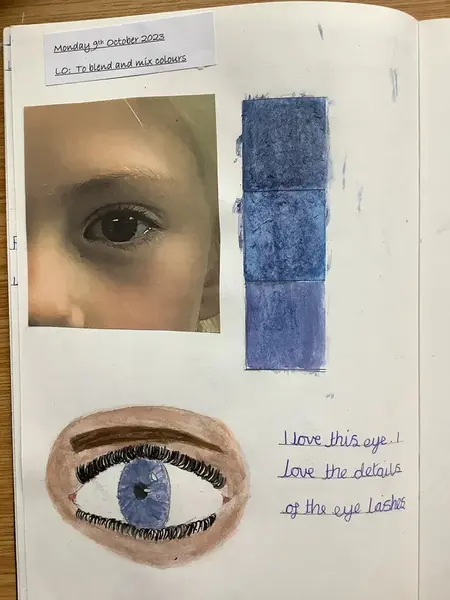 Monday 9th October 2023
LO: To blend and mix colours
I love this eye. I
love the details
of the eye lashes